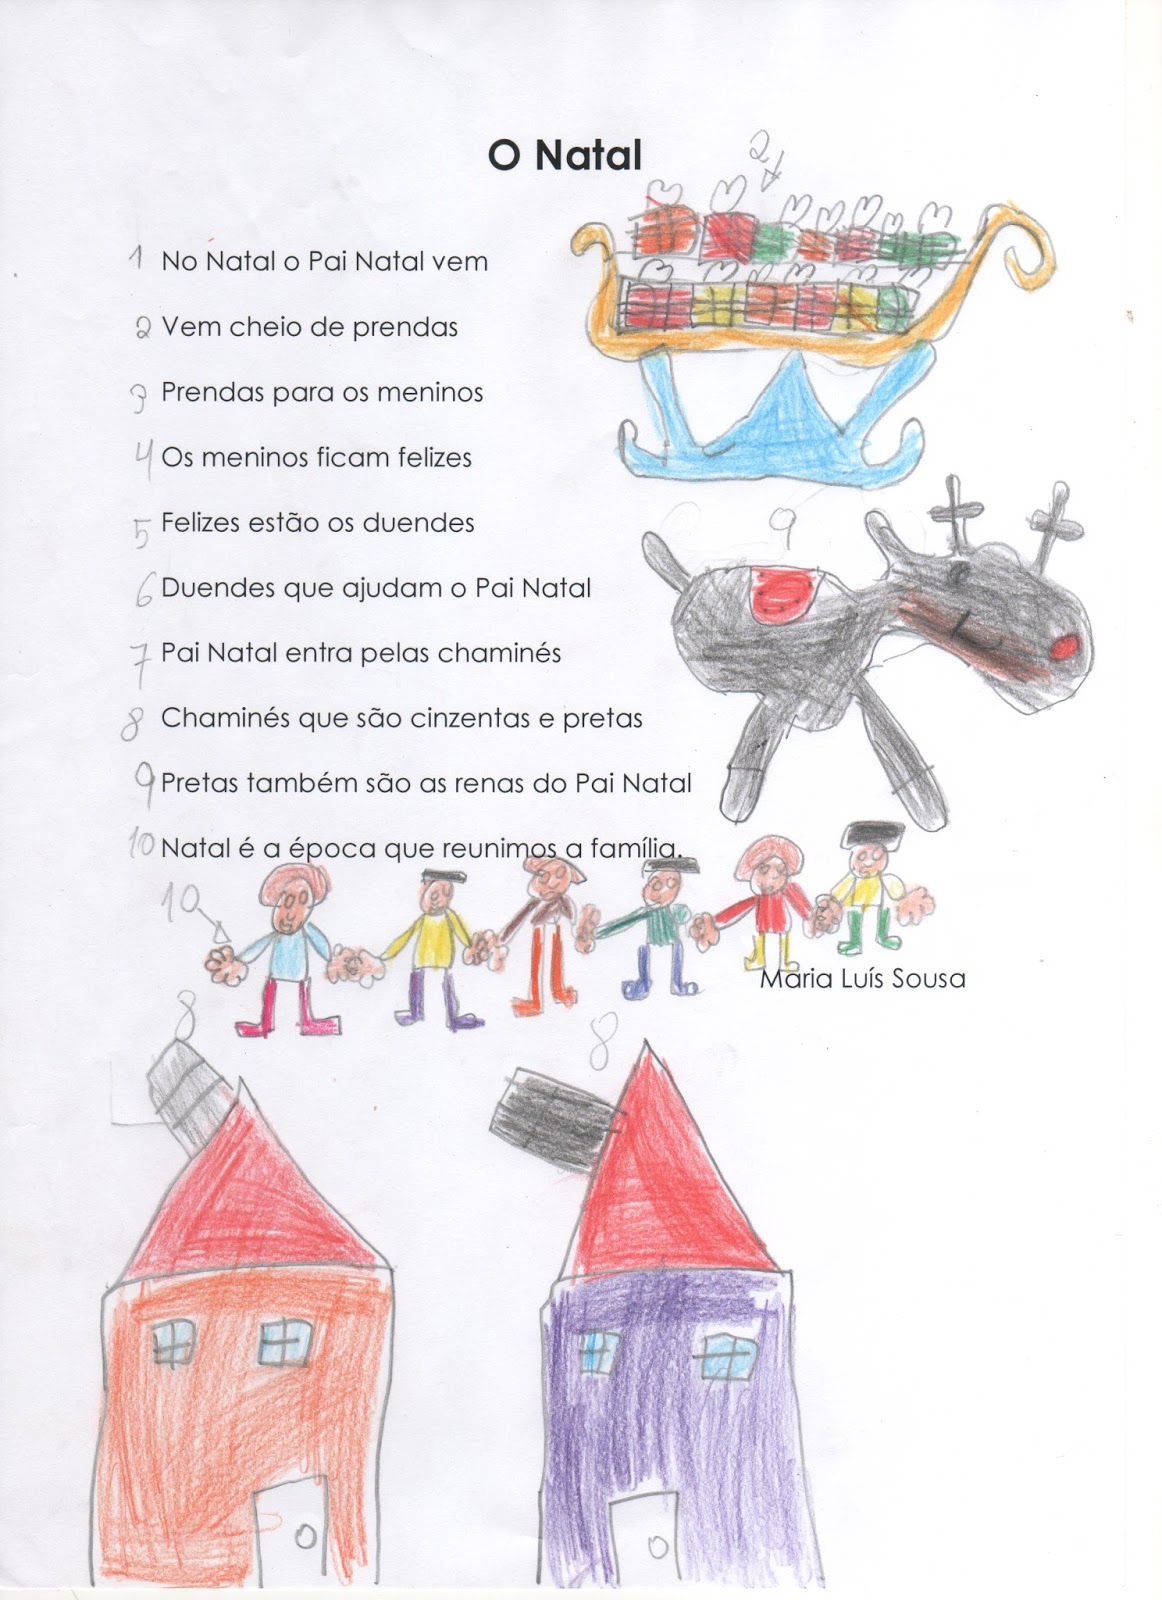 O Natal
2
1 No Natal o Pai Natal vem
2 Vem cheio de prendas
3 Prendas para os meninos
4 Os meninos ficam felizes
5 Felizes estão os duendes
9
6 Duendes que ajudam o Pai Natal
7 Pai Natal entra pelas chaminés
8 Chaminés que são cinzentas e pretas
9 Pretas também são as renas do Pai Natal
10 Natal é a época que reunimos a família.
10
Maria Luís Sousa
8
8